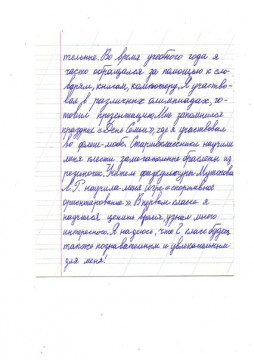 тельнее. Во время учебного года я
часто обращался за помощью к сло-
варям, книгам, компьютеру. Я участво-
вал в различных олимпиадах, го-
товил презентации. Мне запомнился
праздник «День Семьи», где я участвовал
во флеш-мобе. Старшеклассники научили
меня плести замечательные браслеты из
резиночек. Учитель физкультуры
Л.Г. научила меня игре «спортивное
ориентирование». В первом классе я
научился ценить время, узнал много
интересного. Я надеюсь, что 2 класс будет
таким познавательным и увлекательным
для меня!